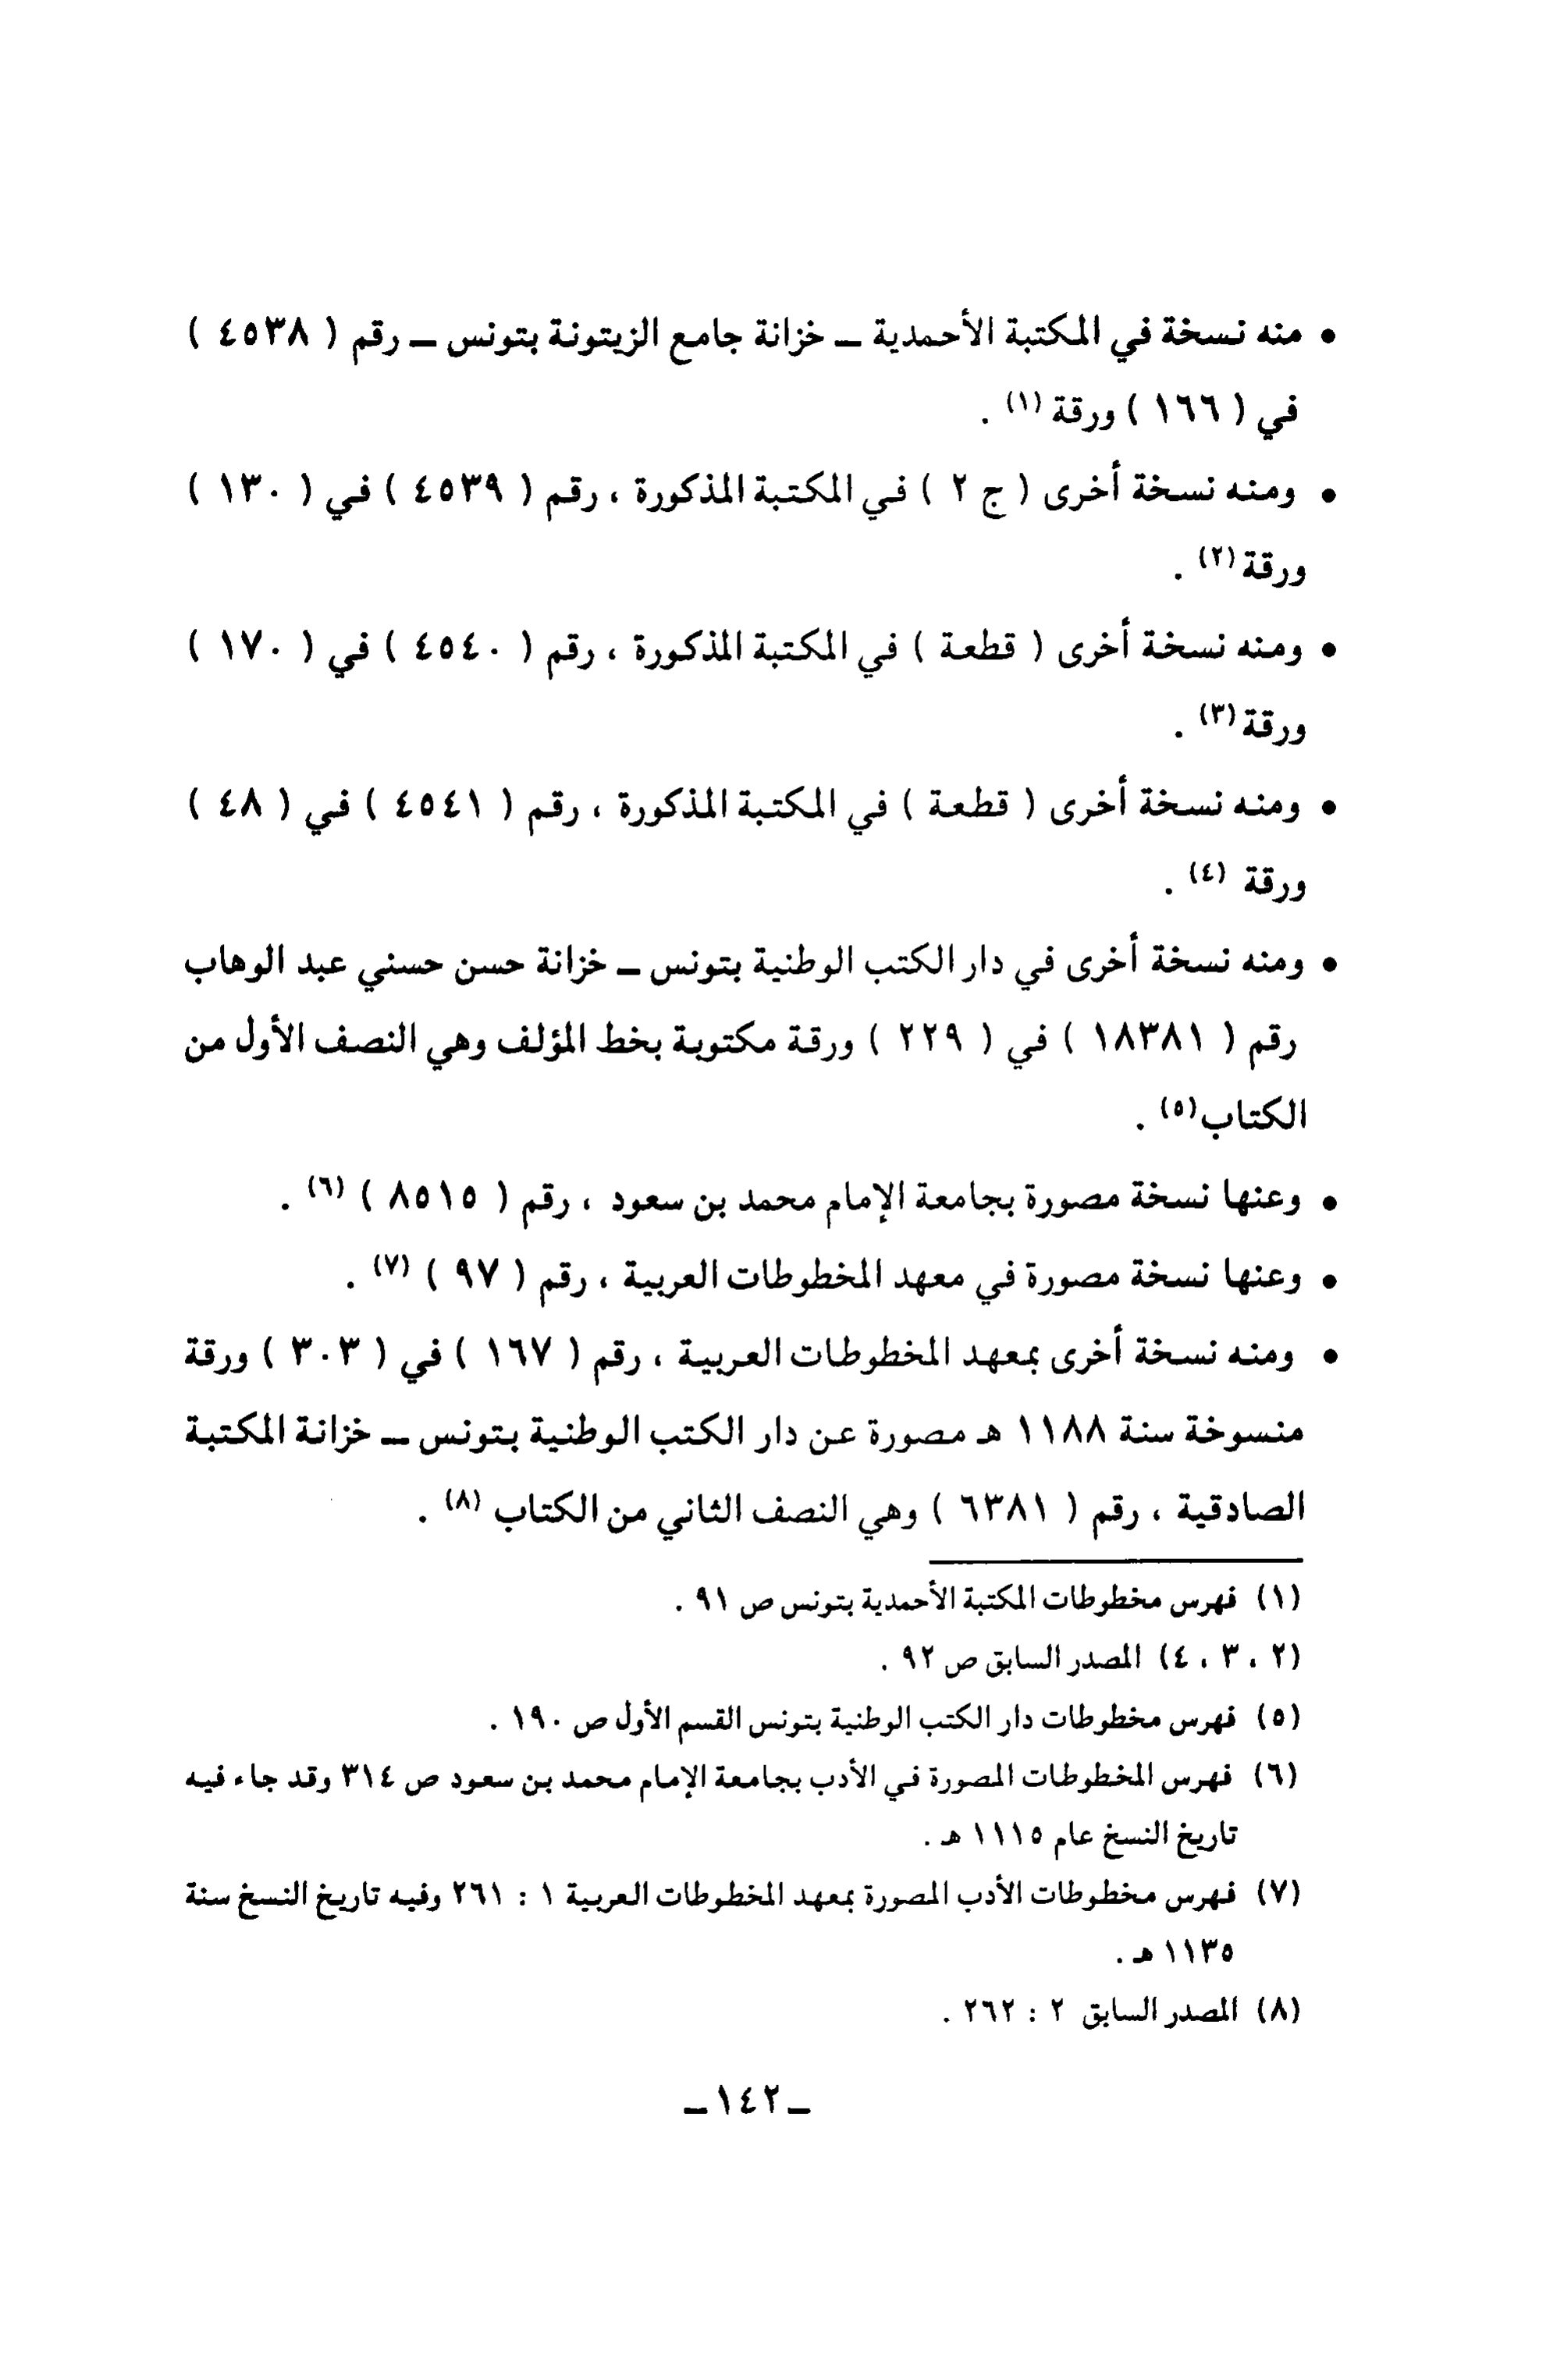 • منه نسخة في المكتبة الأحمدية – خزانة جامع الزيتونة بتونس – رقم ( ٤٥٣٨ )
في ( ١٦٦ ) ورقة (١) .
• ومنه نسخة أخرى ( ج ٢ ) في المكتبة المذكورة ، رقم ( ٤٥٣٩ ) في ( ١٣٠ )
ورقة (٢) .
• ومنه نسخة أخرى ( قطعة ) في المكتبة المذكورة ، رقم ( ٤٥٤٠ ) في ( ١٧٠ )
ورقة (٣) .
• ومنه نسخة أخرى ( قطعة ) في المكتبة المذكورة ، رقم ( ٤٥٤١ ) في ( ٤٨ )
ورقة (٤) .
• ومنه نسخة أخرى في دار الكتب الوطنية بتونس – خزانة حسن حسني عبد الوهاب
رقم ( ١٨٣٨١ ) في ( ٢٢٩ ) ورقة مكتوبة بخط المؤلف وهي النصف الأول من
الكتاب (٥) .
• وعنها نسخة مصورة بجامعة الإمام محمد بن سعود ، رقم ( ٨٥١٥ ) (٦) .
• وعنها نسخة مصورة في معهد المخطوطات العربية ، رقم ( ٩٧ ) (٧) .
• ومنه نسخة أخرى بمعهد المخطوطات العربية ، رقم ( ١٦٧ ) في ( ٣٠٣ ) ورقة
منسوخة سنة ١١٨٨ هـ مصورة عن دار الكتب الوطنية بتونس – خزانة المكتبة
الصادقية ، رقم ( ٦٣٨١ ) وهي النصف الثاني من الكتاب (٨) .
(١) فهرس مخطوطات المكتبة الأحمدية بتونس ص ٩١ .
(٢ ، ٣ ، ٤) المصدر السابق ص ٩٢ .
(٥) فهرس مخطوطات دار الكتب الوطنية بتونس القسم الأول ص ١٩٠ .
(٦) فهرس المخطوطات المصورة في الأدب بجامعة الإمام محمد بن سعود ص ٣١٤ وقد جاء فيه
تاريخ النسخ عام ١١١٥ هـ .
(٧) فهرس مخطوطات الأدب المصورة بمعهد المخطوطات العربية ١ : ٢٦١ وفيه تاريخ النسخ سنة
١١٣٥ هـ .
(٨) المصدر السابق ٢ : ٢٦٢ .
–١٤٢–